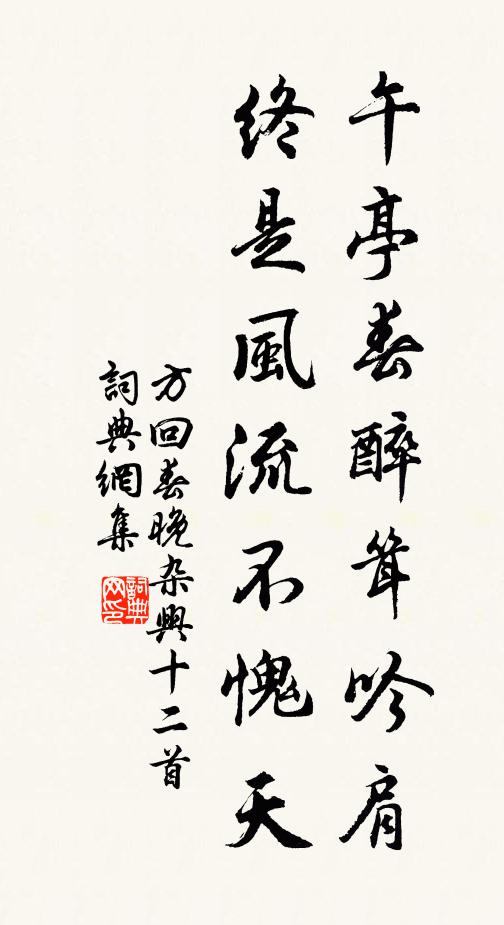 午亭春醉聳吟肩
終是風流不愧天
方回春晚杂興十二首
詞典網集
詞典网印